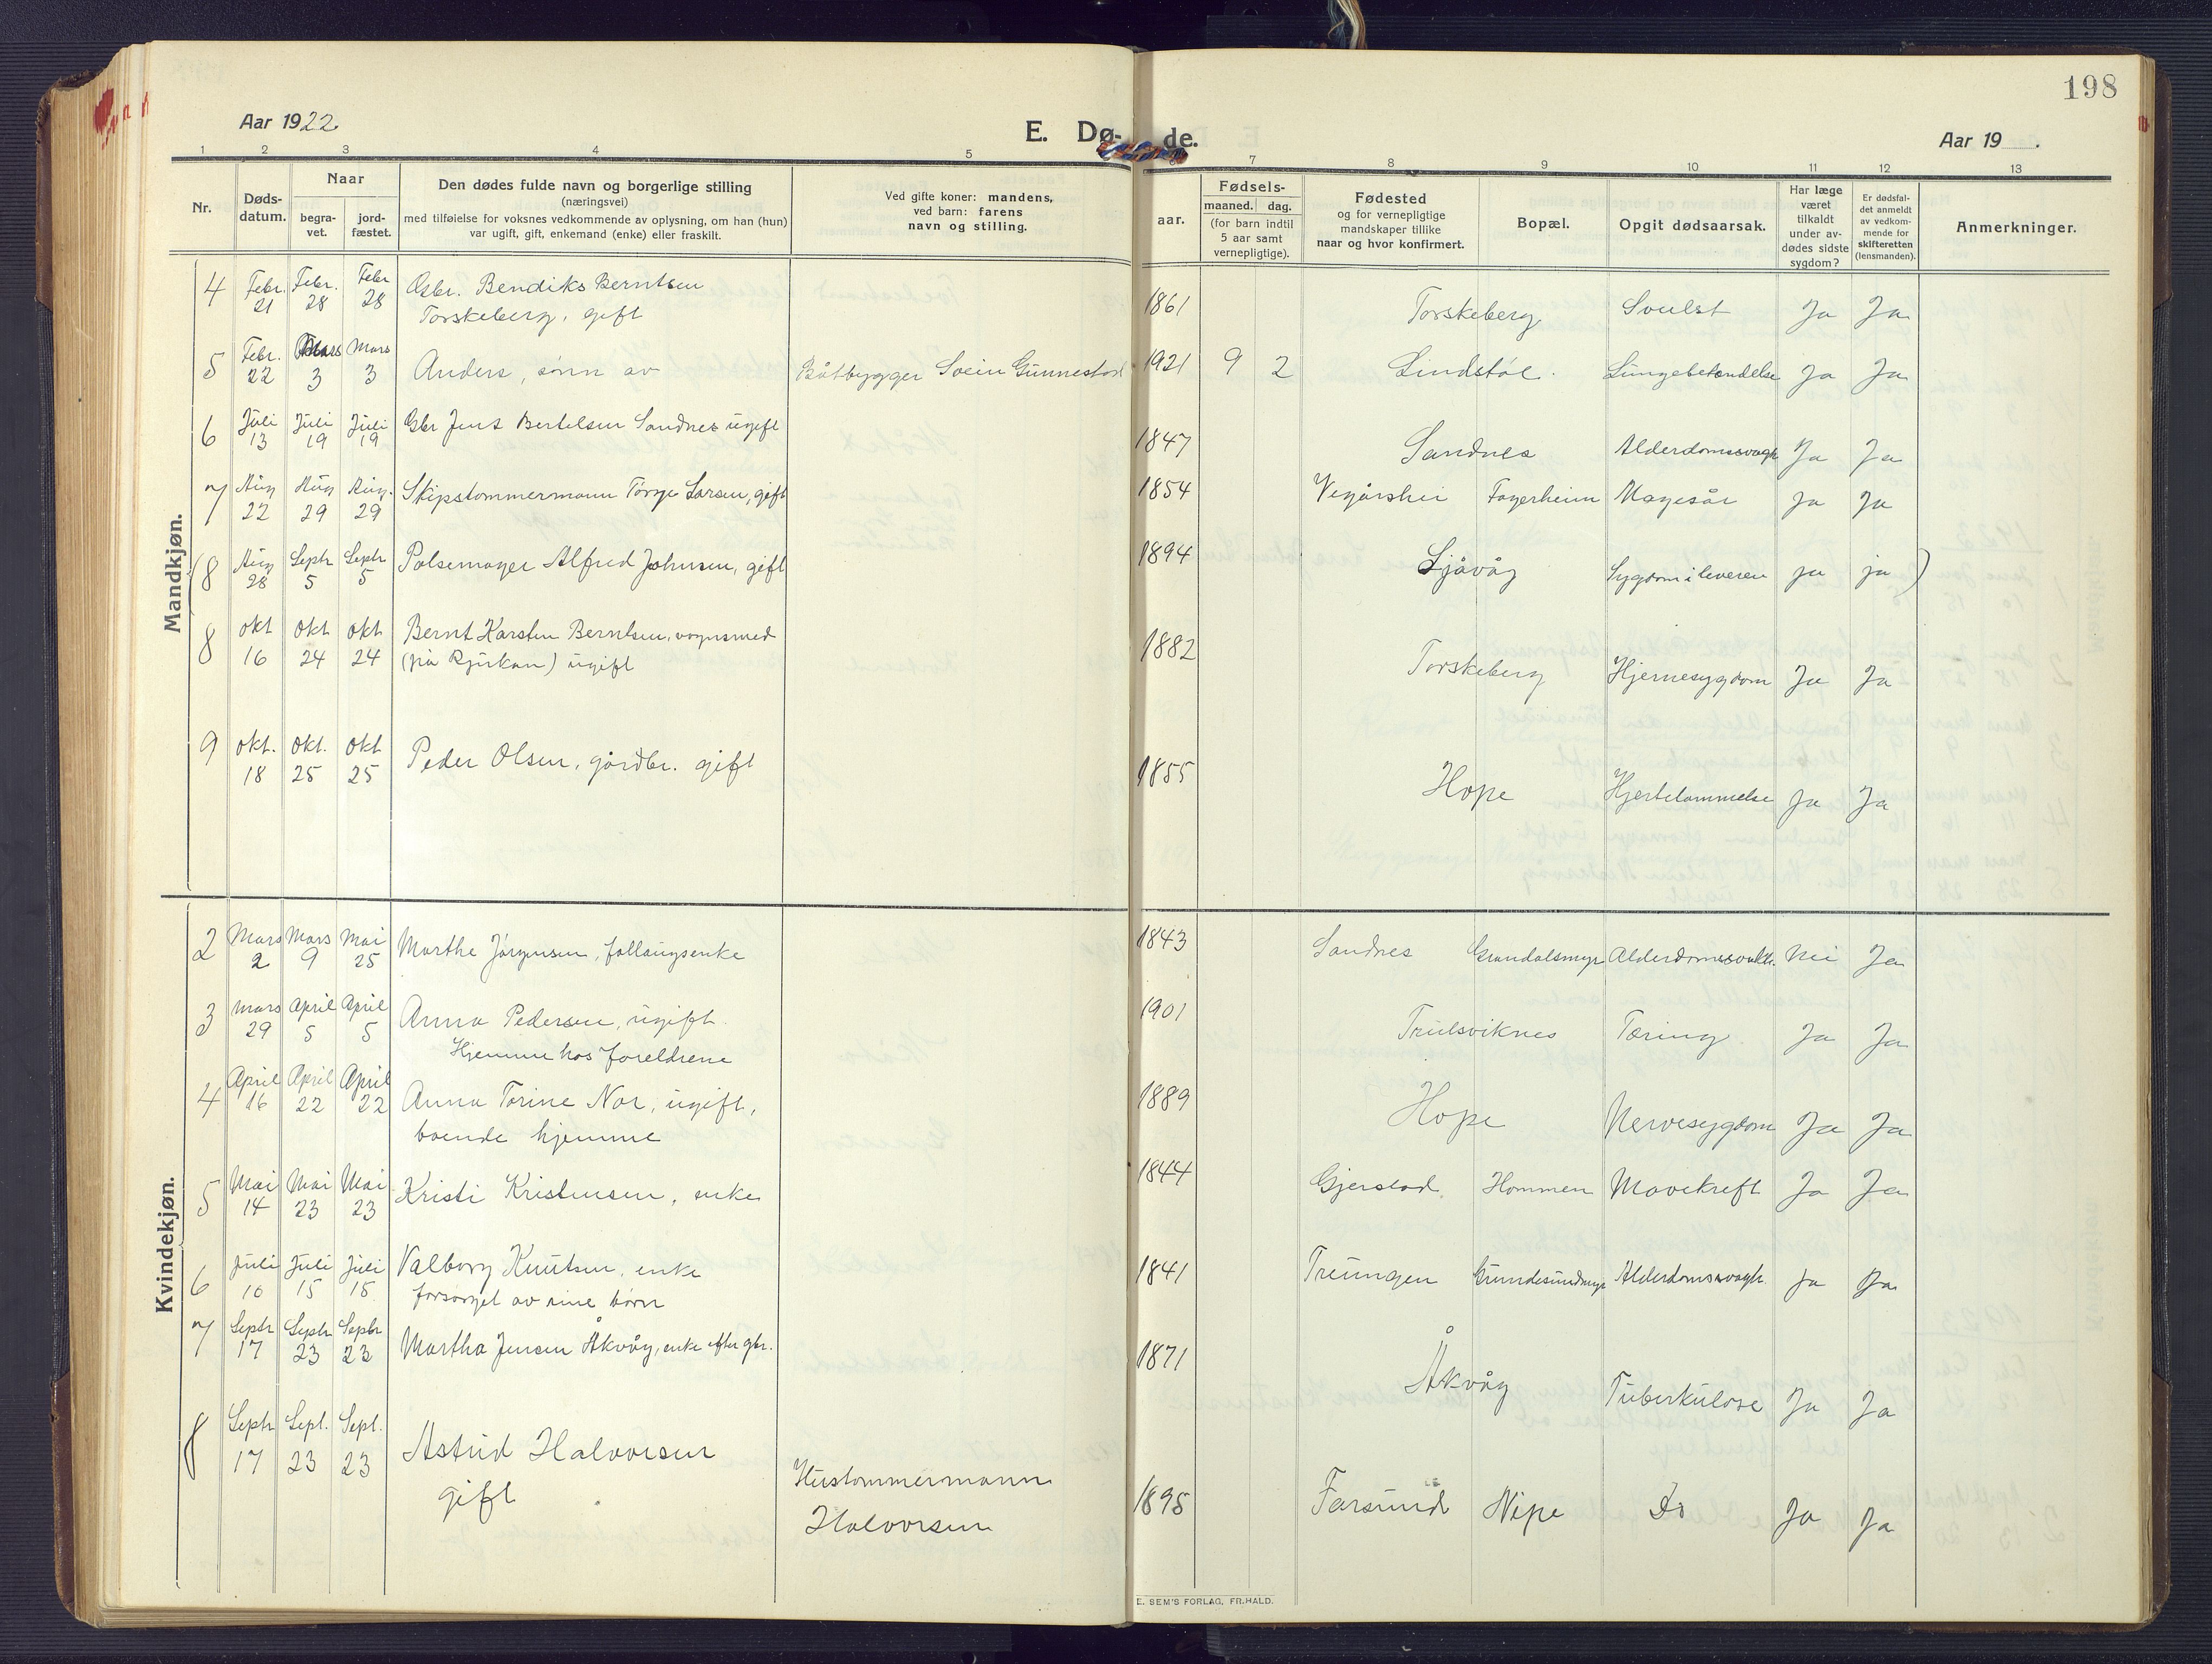 198
Aar 1922
E. Dø-
de.
Aar 19 .
1 2 3 4 5 7 8 9 10 11 12 13
Nr.
Døds-
datum.
Naar
begra-
vet.
jord-
fæstet.
Den dødes fulde navn og borgerlige stilling
(næringsvei)
med tilføielse for voksnes vedkommende av oplysning, om han (hun)
var ugift, gift, enkemand (enke) eller fraskilt.
Ved gifte koner: mandens,
ved barn: farens
navn og stilling.
aar.
Fødsels-
maaned. dag.
(for barn indtil
5 aar samt
vernepligtige).
Fødested
og for vernepligtige
mandskaper tillike
naar og hvor konfirmert.
Bopæl.
Opgit dødsaarsak.
Har læge
været
tilkaldt
under av-
dødes sidste
sygdom?
Er dødsfal-
det anmeldt
av vedkom-
mende for
skifteretten
(lensmanden).
Anmerkninger.
Mandkjøn.
4 Febr. 21 Febr. 28 Febr 28 Gsbr. Bendiks Berntsen
Torskeberg, gift
1861 Torskeberg Svulst Ja Ja
5 Febr. 22 Mars 3 Mars 3 Anders, sønn av Båtbygger Svein Gunnestad 1921 9 2 Lindstøl. Lungebetændelse Ja Ja
6 Juli 13 Juli 19 Juli 19 Gbr Jens Bertelsen Sandnes ugift 1847 Sandnes Alderdomssvagh Ja Ja
7 Aug 22 Aug 29 Aug. 29 Skipstømmermann Tørge Larsen, gift 1854 Vegårshei Fagerheim Magesår Ja Ja
(8 Aug 28 Septr 5 Septr 5 Pølsemager Alfred Johnsen, gift 1894 Ljåvåg Sygdom i leveren ja ja )
8 okt 16 okt 24 okt 24 Bernt Karsten Berntsen, vognsmed
(på Rjukan) ugift
1882 Torskeberg Hjernesygdom Ja Ja
9 okt. 18 okt. 25 okt 25 Peder Olsen, gårdbr. gift 1855 Hope Hjertelammelse Ja Ja
Kvindekjøn.
2 Mars 2 Mars 9 Mai 25 Marthe Jørgensen, fattigenke 1843 Sandnes Alderdomssvakh. Nei Ja
3 mars 29 April 5 April 5 Anna Pedersen, ugift.
Hjemme hos foreldrene
1901 Trulsviknes Tæring Ja Ja
4 April 16 April 22 April 22 Anna Torine Nor, ugift,
boende hjemme
1889 Hope Nervesygdom Ja Ja
5 Mai 14 Mai 23 Mai 23 Kristi Kristensen, enke 1844 Gjerstad. Hommen Mavekreft Ja Ja
6 Juli 10 Juli 15 Juli 15 Valborg Knutsen, enke
forsørget av sine børn
1841 Treungen Alderdomssvagh. Ja Ja
7 Septr 17 Septr 23 Septr 23 Martha Jensen Åkvåg, enke efter gbr. 1871 Åkvåg Tuberkulose Ja Ja
8 Septr 17 Sept. 23 Sept. 23 Astrid Halvorsen
gift
Hustømmermann
Halvorsen
1895 Farsund Nipe Do Ja Ja
E. SEM'S FORLAG, FR.HALD.